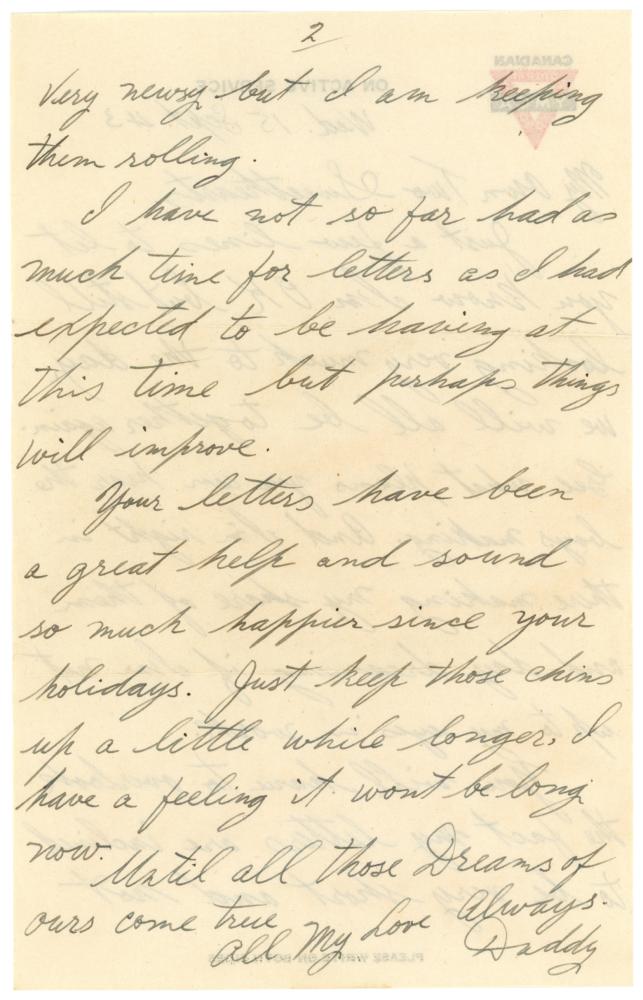 2
very newsy but I am keeping
them rolling.
I have not so far had as
much time for letters as I had
expected to be having at
this time but perhaps things
will improve.
Your letters have been
a great help and sound
so much happier since your
holidays. Just keep those chins
up a little while longer. I
have a feeling it wont be long
now.
Until all those Dreams of
ours come true
All My Love Always.
Daddy